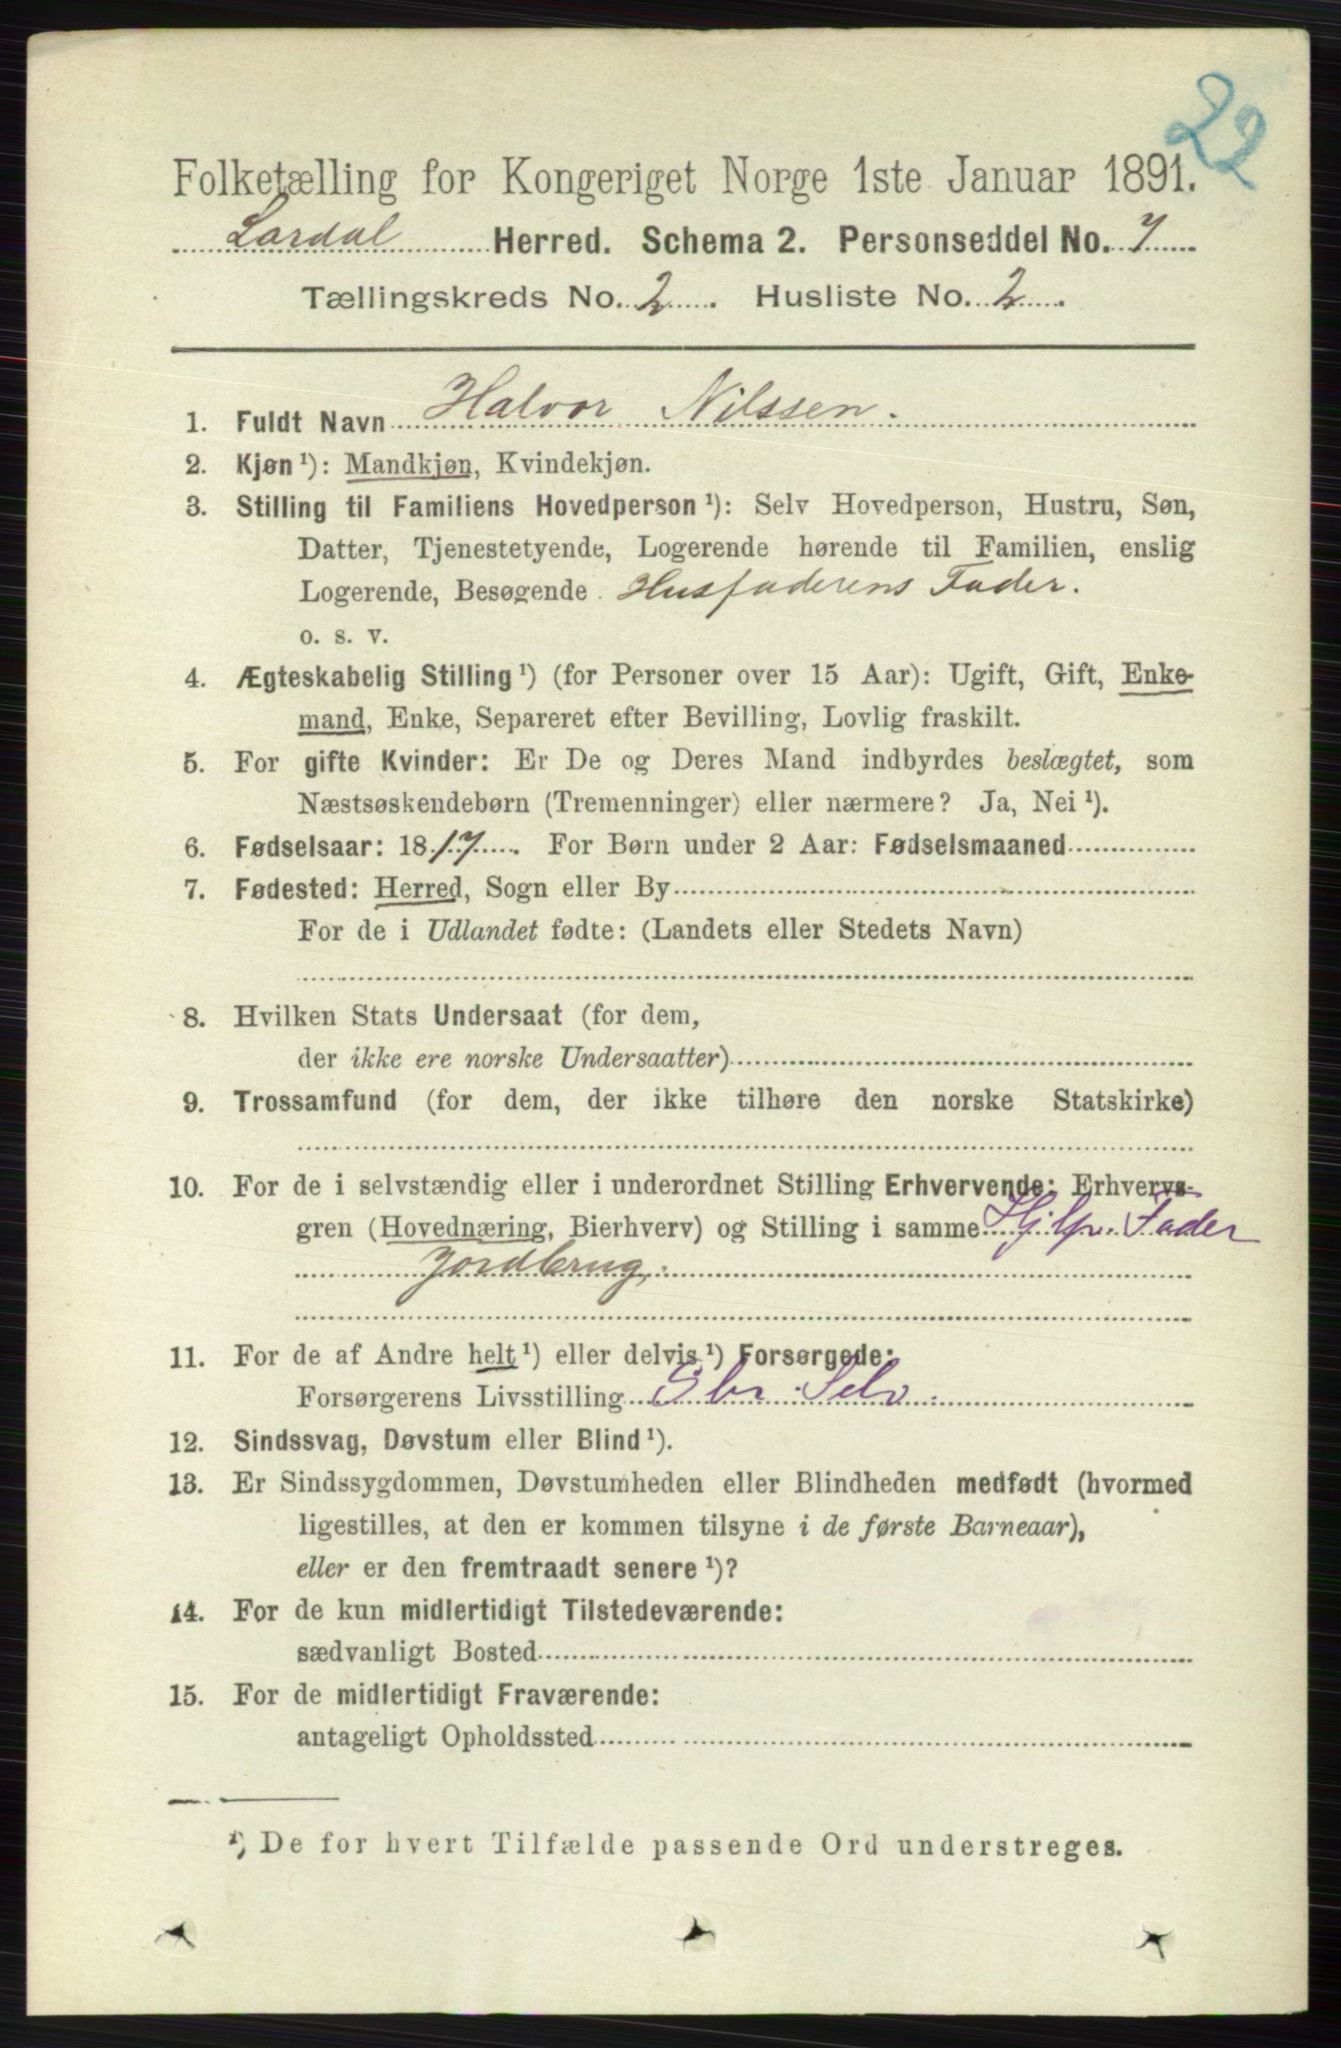 22
Folketælling for Kongeriget Norge 1ste Januar 1891.
Lardal Herred. Schema 2. Personseddel No. 7
Tællingskreds No. 2. Husliste No. 2.
1. Fuldt Navn Halvor Nilssen.
2. Kjøn ¹): Mandkjøn, Kvindekjøn.
3. Stilling til Familiens Hovedperson ¹): Selv Hovedperson, Hustru, Søn,
Datter, Tjenestetyende, Logerende hørende til Familien, enslig
Logerende, Besøgende Husfaderens Fader.
o. s. v.
4. Ægteskabelig Stilling ¹) (for Personer over 15 Aar): Ugift, Gift, Enke-
mand, Enke, Separeret efter Bevilling, Lovlig fraskilt.
5. For gifte Kvinder: Er De og Deres Mand indbyrdes beslægtet, som
Næstsøskendebørn (Tremenninger) eller nærmere? Ja, Nei ¹).
6. Fødselsaar: 1817. For Børn under 2 Aar: Fødselsmaaned
7. Fødested: Herred, Sogn eller By
For de i Udlandet fødte: (Landets eller Stedets Navn)
8. Hvilken Stats Undersaat (for dem,
der ikke ere norske Undersaatter)
9. Trossamfund (for dem, der ikke tilhøre den norske Statskirke)
10. For de i selvstændig eller i underordnet Stilling Erhvervende: Erhvervs-
gren (Hovednæring, Bierhverv) og Stilling i samme Hjlp. Fader
Jordbrug.
11. For de af Andre helt ¹) eller delvis ¹) Forsørgede:
Forsørgerens Livsstilling Gbr. Selv.
12. Sindssvag, Døvstum eller Blind ¹).
13. Er Sindssygdommen, Døvstumheden eller Blindheden medfødt (hvormed
ligestilles, at den er kommen tilsyne i de første Barneaar),
eller er den fremtraadt senere ¹)?
14. For de kun midlertidigt Tilstedeværende:
sædvanligt Bosted
15. For de midlertidigt Fraværende:
antageligt Opholdssted
¹) De for hvert Tilfælde passende Ord understreges.